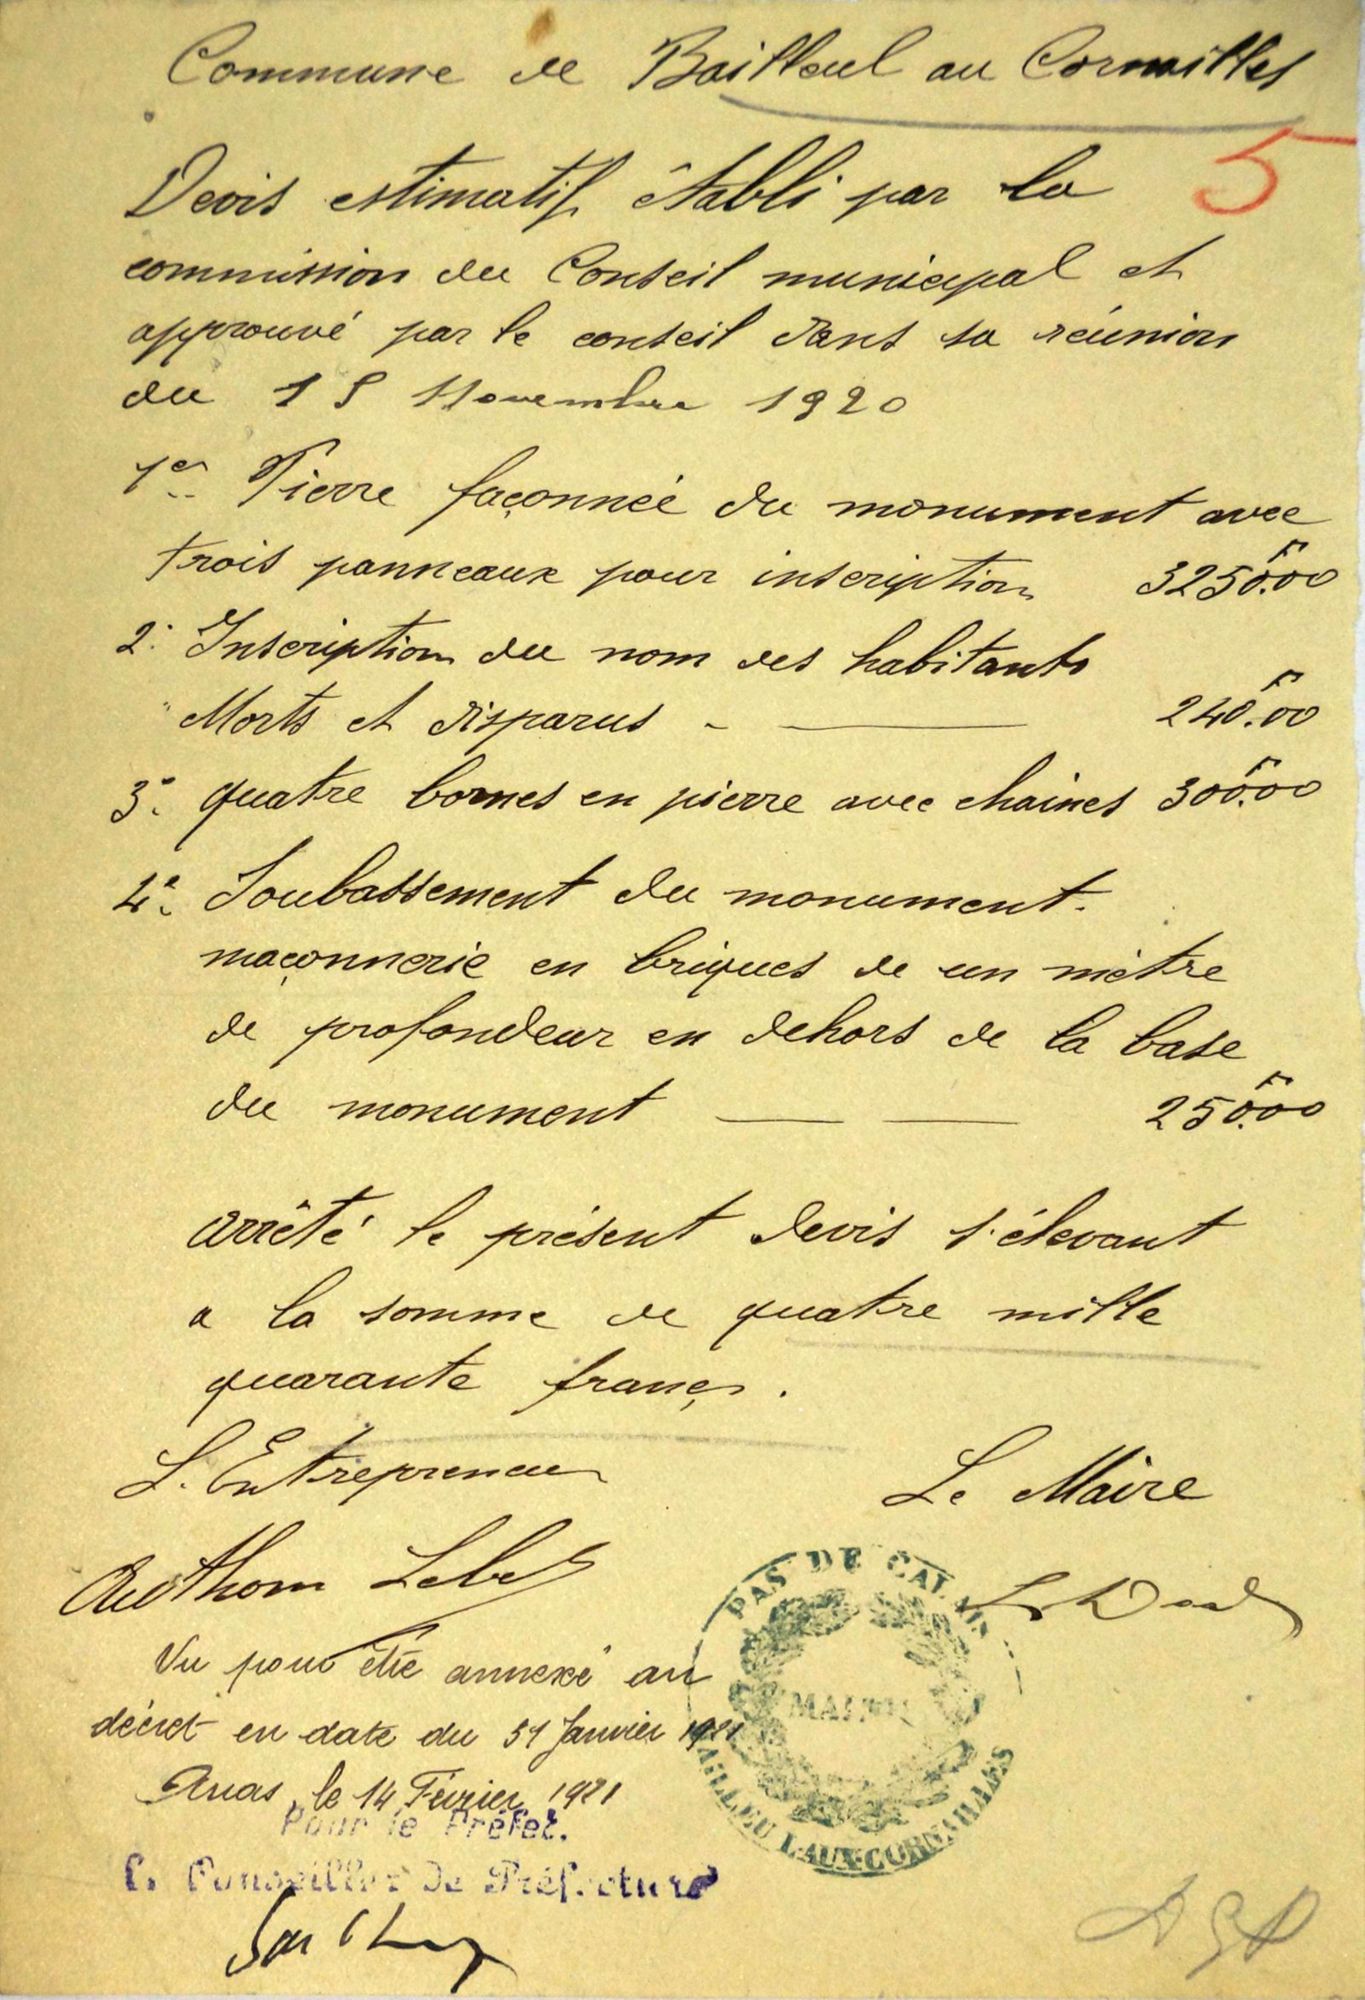 Commune de Bailleul au Cornailles
5
Devis estimatif établi par la
commission du Conseil municipal et
approuvé par le conseil dans sa réunion
du 15 Novembre 1920
1er Pierre façonnée du monument avec
trois panneaux pour inscription 3250F.00
2° Inscription du nom des habitants
Morts et disparus - 240F.00
3° quatre bornes en pierre avec chaines 300F.00
4° Soubassement du monument.
maçonnerie en briques de un mètre
de profondeur en dehors de la base
du monument 250F.00
arrêté le présent devis s'élevant
a la somme de quatre mille
quarante françs.
L'Entrepreneur
Le Maire
PAS DE CALAIS
MAIRIE
BAILLEUL-AUX-CORNAILLES
Vu pour être annexé au
décret en date du 31 Janvier 1921
Arras, le 14 Février 1921
Pour le Préfet.
Le Conseiller de Préfecture